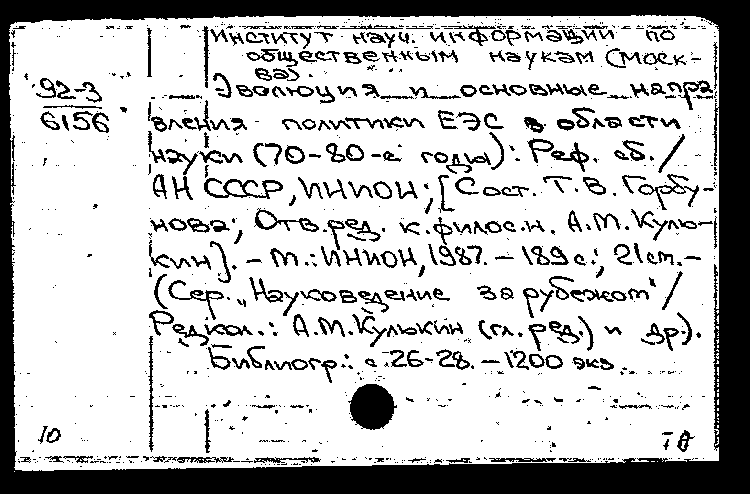 Институт науч. информации по
общественным наукам (Моск-
ва).
92-3
6156
Эволюция и основные напра
вления политики ЕЭС в области
науки (70-80-е годы): Реф. сб. /
АН СССР, ИНИОН; [Сост. Т.В. Горбу-
нова; Отв. ред. к.филос.н. А.М. Кулю-
кин]. - М.: ИНИОН, 1987. - 189 с.; 21 см. -
(Сер. „Науковедение за рубежом" /
Редкол.: А.М. Кулькин (гл. ред.) и др.).
Библиогр.: с. 26-28. - 1200 экз.
10